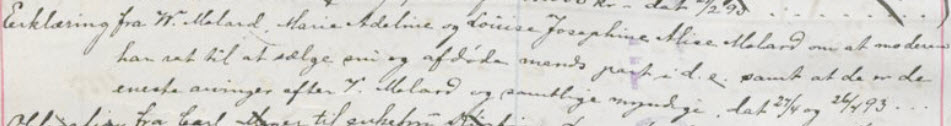 kr – dat. 2/2 93
Erklæring fra W. Molard, Marie Adeline og Louise Josephine Alise Molard om at moderen
har ret til at sælge sin og afdøde mands part i d. e. samt at de er de
eneste arvinger efter V. Molard og samtlige myndige, dat 27/4 og 26/4 93 ...
fra Carl til enkefru